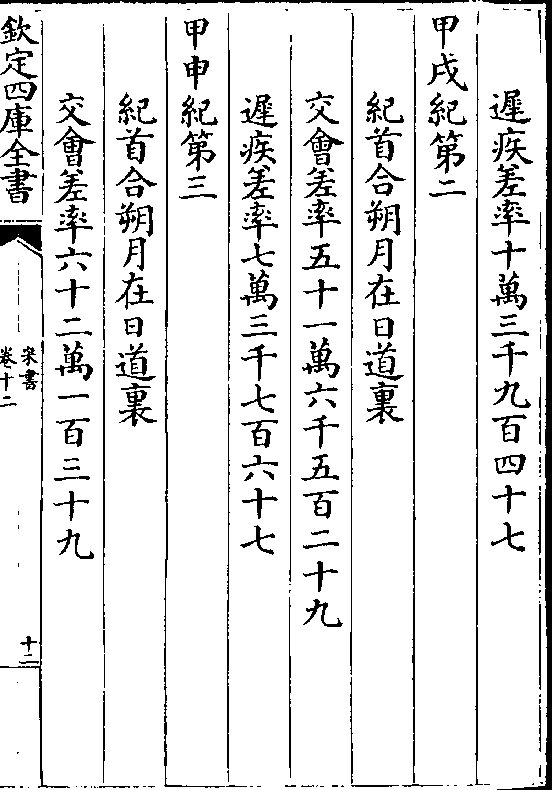 遲疾差率十萬三千九百四十七
甲戌紀第二
紀首合朔月在日道裏
交會差率五十一萬六千五百二十九
遲疾差率七萬三千七百六十七
甲申紀第三
紀首合朔月在日道裏
交會差率六十二萬一百三十九
欽定四庫全書
宋書
卷十二
十二